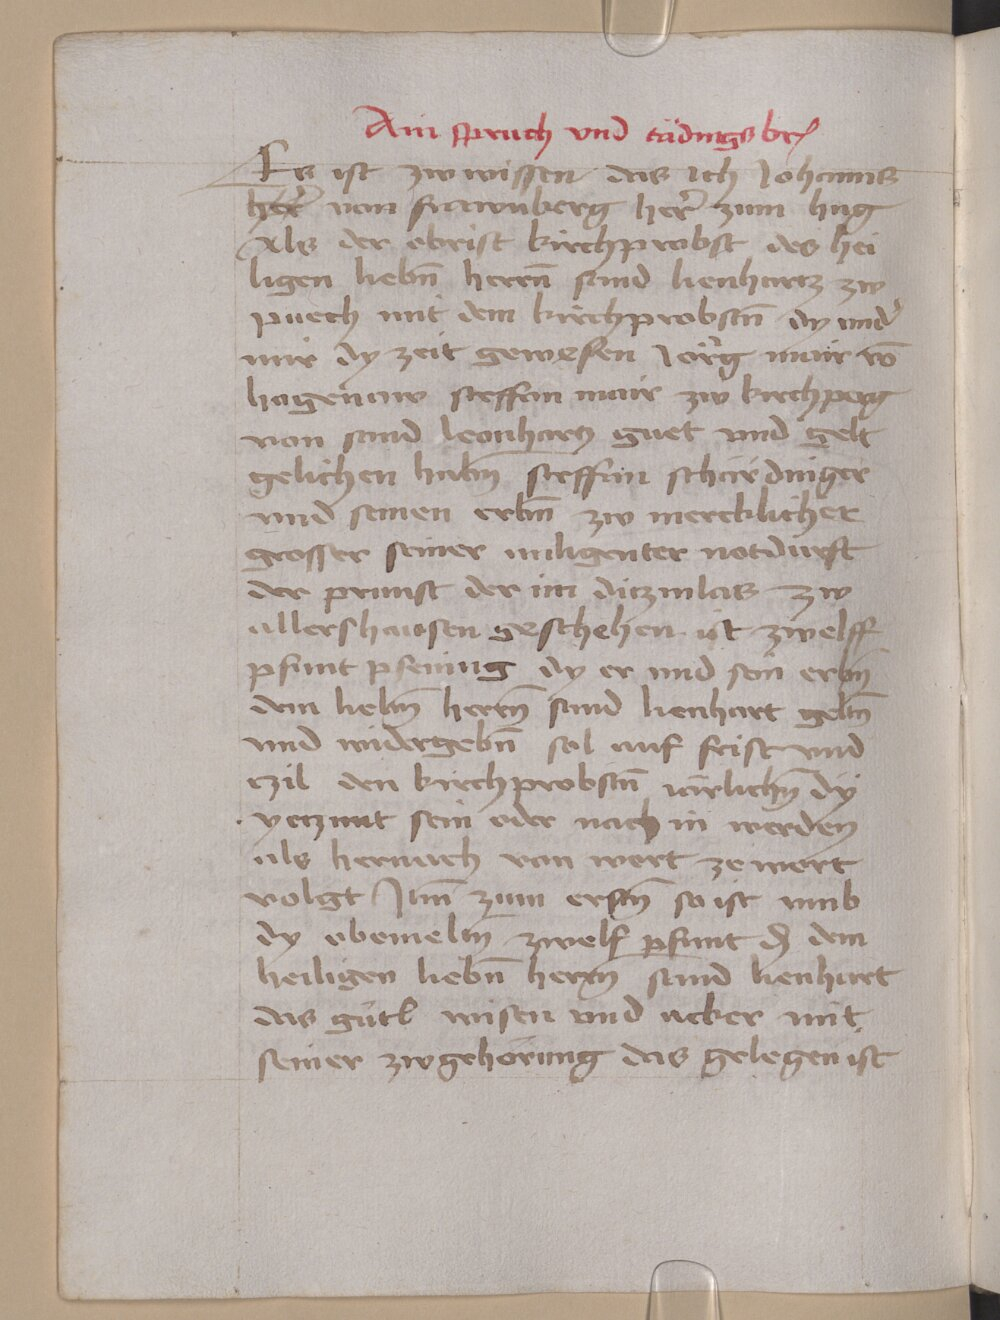 Ain spruch und tädingsbr
Es ist zw wissen das ich Johanns
her̃ von frawnberg her̃ zum hag
Als der obrist kirchprobst des hei
ligen liebñ herrñ sand lienhartz zw
puech mit dem kirchprobstñ dy und̾
mir dy zeit gewesen Jorg mair vō
hagenaw steffan mair zw kirchperg
von sand leonhartz guet und gelt
gelichen habñ steffan schärdinger
und seinen erbñ zw mercklicher
grosser seiner anligenter notdurft
der prunst der im ditzmals zw
allershausen geschehen ist zwelff
pfunt pfening dy er und sein erbñ
dem liebñ herrñ sand lienhart geltñ
und widergebñ sol auf frist und
tzil den kirchprobstñ iärlichñ dÿ
yetzunt sein oder nach in werden
als hernach von wort ze wort
volgt Itm̃ zum erstñ so ist umb
dy obemeltñ zwelf pfunt ₰ dem
heiligen liebñ herrñ sand lienhart
das gütl wisen und acker mit
seiner zwgehörung das gelegen ist